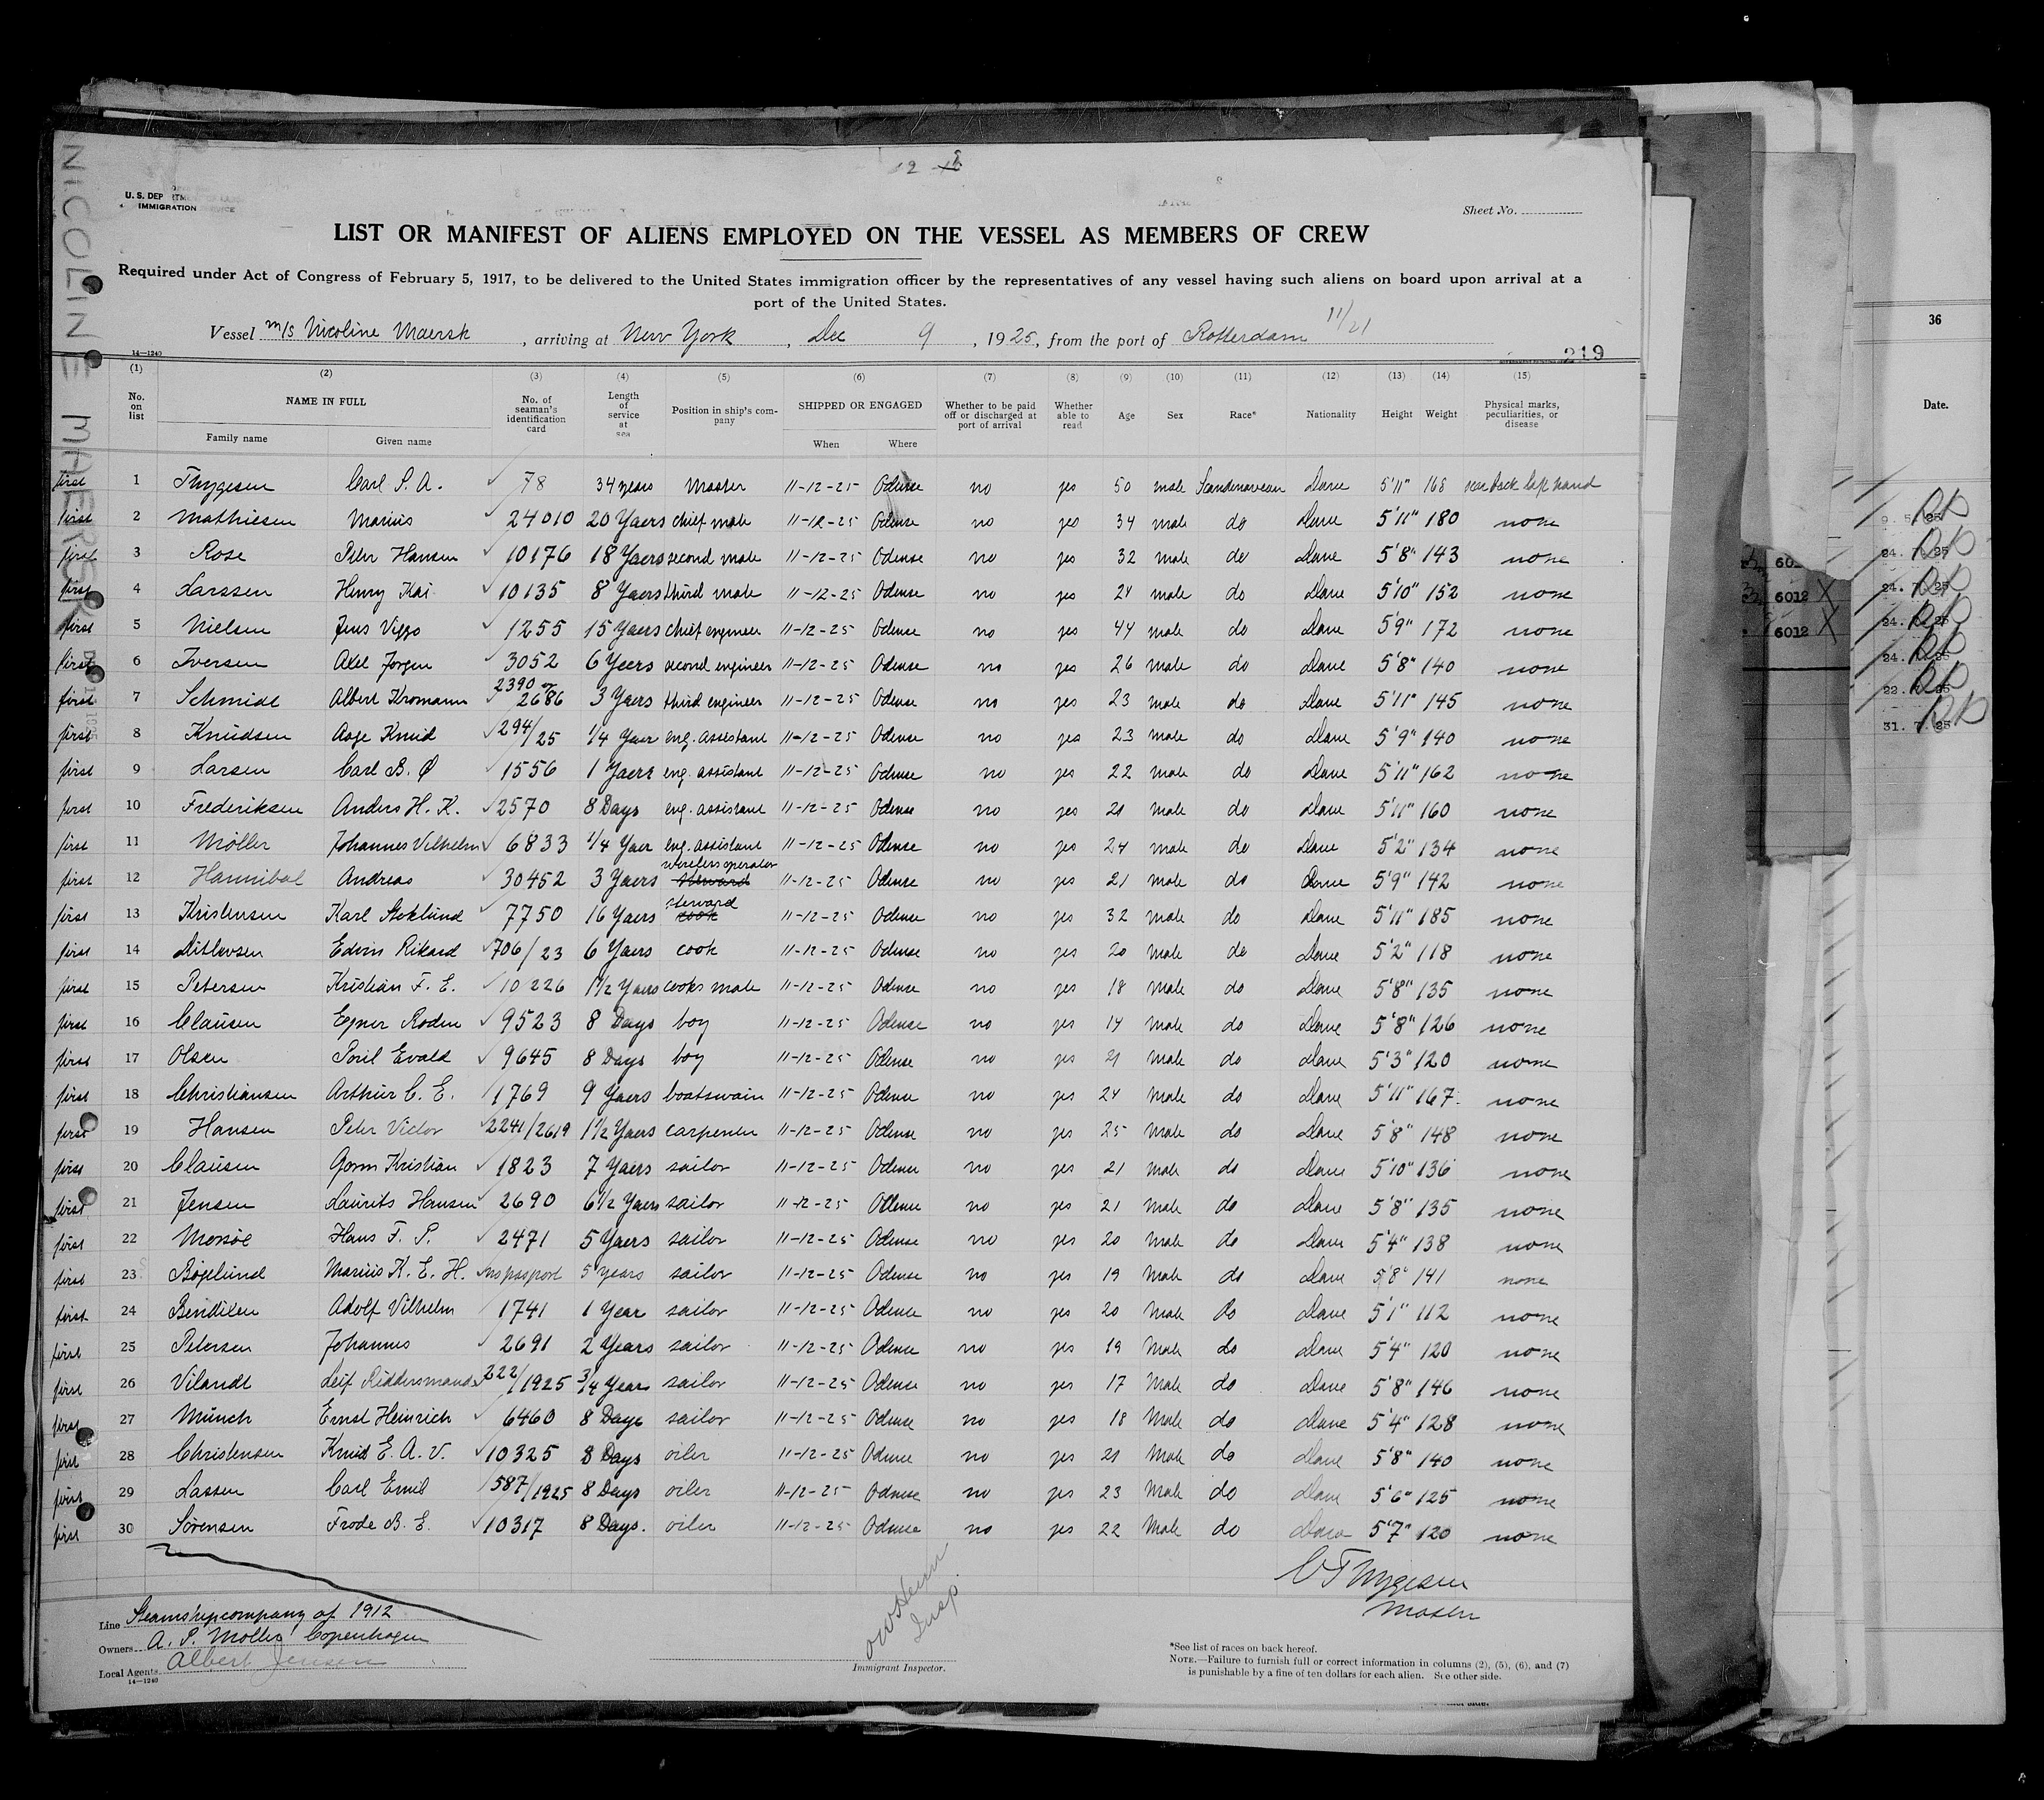 NICOLINE MAERSK
U. S. DEP
IMMIGRATION
Sheet No.
LIST OR MANIFEST OF ALIENS EMPLOYED ON THE VESSEL AS MEMBERS OF CREW
Required under Act of Congress of February 5, 1917, to be delivered to the United States immigration officer by the representatives of any vessel having such aliens on board upon arrival at a
port of the United States.
Vessel m/s Nicoline Maersk, arriving at New York, Dec 9, 1925, from the port of Rotterdam 11/21
14—1240
219
(1) (2) (3) (4) (5) (6) (7) (8) (9) (10) (11) (12) (13) (14) (15)
No. on list NAME IN FULL Family name Given name No. of seaman's identification card Length of service at sea Position in ship's company SHIPPED OR ENGAGED When Where Whether to be paid off or discharged at port of arrival Whether able to read Age Sex Race* Nationality Height Weight Physical marks, peculiarities, or disease
first 1 Thygesen Carl P. A. 78 34 years Master 11-12-25 Odense no yes 50 male Scandinavean Dane 5'11" 168 scar back left hand
first 2 Mathiesen Marius 24010 20 Yaers chief mate 11-12-25 Odense no yes 34 male do Dane 5'11" 180 none
first 3 Rose Peter Hansen 10176 18 Yaers second mate 11-12-25 Odense no yes 32 male do Dane 5'8" 143 none
first 4 Larssen Henry Kai 10135 8 Yaers third mate 11-12-25 Odense no yes 24 male do Dane 5'10" 152 none
first 5 Nielsen Jens Viggo 1255 15 Yaers chief engineer 11-12-25 Odense no yes 44 male do Dane 5'9" 172 none
first 6 Iversen Axel Jorgen 3052 6 Yeers second engineer 11-12-25 Odense no yes 26 male do Dane 5'8" 140 none
first 7 Schmidt Albert Kromann 2390 or 2686 3 Yaers third engineer 11-12-25 Odense no yes 23 male do Dane 5'11" 145 none
first 8 Knudsen Aage Knud 294/25 1/4 Yaer eng. assistant 11-12-25 Odense no yes 23 male do Dane 5'9" 140 none
first 9 Larsen Carl B. Ø 1556 1 Yaers eng. assistant 11-12-25 Odense no yes 22 male do Dane 5'11" 162 none
first 10 Frederiksen Anders H. K. 2570 8 Days eng. assistant 11-12-25 Odense no yes 21 male do Dane 5'11" 160 none
first 11 Møller Johannes Vilhelm 6833 1/4 Yaer eng. assistant 11-12-25 Odense no yes 24 male do Dane 5'2" 134 none
first 12 Hannibal Andreas 30452 3 Yaers wireless operator steward 11-12-25 Odense no yes 21 male do Dane 5'9" 142 none
first 13 Kristensen Karl Stoklund 7750 16 Yaers steward cook 11-12-25 Odense no yes 32 male do Dane 5'11" 185 none
first 14 Ditlevsen Edvin Rikard 706/23 6 Yaers cook 11-12-25 Odense no yes 20 male do Dane 5'2" 118 none
first 15 Petersen Kristian F. E. 10226 1 1/2 Yaers cooks mate 11-12-25 Odense no yes 18 male do Dane 5'8" 135 none
first 16 Clausen Egner Roden 9523 8 Days boy 11-12-25 Odense no yes 14 male do Dane 5'8" 126 none
first 17 Olsen Poul Evald 9645 8 Days boy 11-12-25 Odense no yes 21 male do Dane 5'3" 120 none
first 18 Christiansen Arthur C. E. 1769 9 Yaers boatswain 11-12-25 Odense no yes 24 Male do Dane 5'11" 167 none
first 19 Hansen Peter Victor 2241/2619 1 1/2 Yaers carpenter 11-12-25 Odense no yes 25 Male do Dane 5'8" 148 none
first 20 Clausen Gorm Kristian 1823 7 Yaers sailor 11-12-25 Odense no yes 21 Male do Dane 5'10" 136 none
first 21 Jensen Laurits Hansen 2690 6 1/2 Yaers sailor 11-12-25 Odense no yes 21 Male do Dane 5'8" 135 none
first 22 Morsøe Hans F. P. 2471 5 Yaers sailor 11-12-25 Odense no yes 20 Male do Dane 5'4" 138 none
first 23 Bøgelund Marius K. E. H. no passport 5 years sailor 11-12-25 Odense no yes 19 Male do Dane 5'8" 141 none
first 24 Bendixen Adolf Vilhelm 1741 1 Year sailor 11-12-25 Odense no yes 20 Male do Dane 5'1" 112 none
first 25 Petersen Johannes 2691 2 Years sailor 11-12-25 Odense no yes 19 Male do Dane 5'4" 120 none
first 26 Vilandt Leif Riddersmands 222/1925 3/4 Years sailor 11-12-25 Odense no yes 17 Male do Dane 5'8" 146 none
first 27 Münch Ernst Heinrich 6460 8 Days sailor 11-12-25 Odense no yes 18 Male do Dane 5'4" 128 none
first 28 Christensen Knud E. A. V. 10325 8 Days oiler 11-12-25 Odense no yes 21 Male do Dane 5'8" 140 none
first 29 Lassen Carl Emil 587/1925 8 Days oiler 11-12-25 Odense no yes 23 Male do Dane 5'6" 125 none
first 30 Sørensen Frode B. E. 10317 8 Days. oiler 11-12-25 Odense no yes 22 Male do Dane 5'7" 120 none
C Thygesen
Master
Line Steamshipcompany of 1912
Owners A. P. Møller Copenhagen
Local Agents Albert Jensen
14—1240
Insp.
Immigrant Inspector.
*See list of races on back hereof.
NOTE.—Failure to furnish full or correct information in columns (2), (5), (6), and (7)
is punishable by a fine of ten dollars for each alien. See other side.
36
Date.
6012
6012